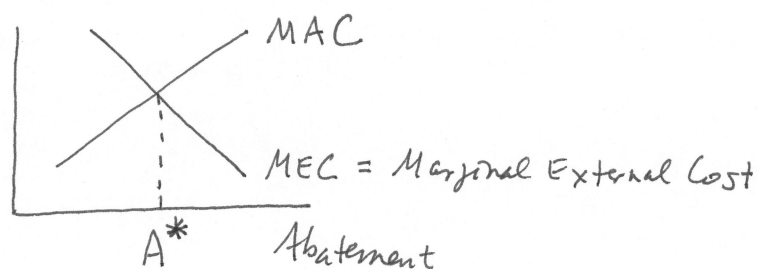 MAC
MEC = Marginal External Cost
A*
Abatement